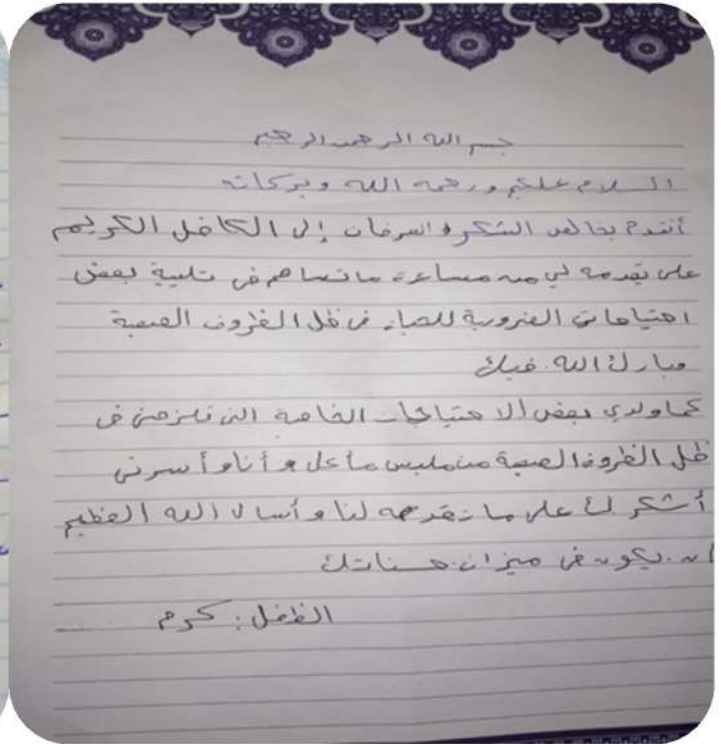 بسم الله الرحمن الرحيم
السلام عليكم ورحمة الله وبركاته
أتقدم بخالص الشكر والعرفان إلى الكافل الكريم
على تقدمه لي من مساعدة ما تساهم في تلبية بعض
احتياجاتي الضرورية للحياة في ظل الظروف الصعبة
وبارك الله فيك
كما ولدي بعض الاحتياجات الخاصة التي تلزمني في
ظل الظروف الصعبة من ملبس مأكل وأنا وأسرتي
أشكرك على ما تقدمه لنا وأسال الله العظيم
ان يكون في ميزان حسناتك
الطفل: كرم